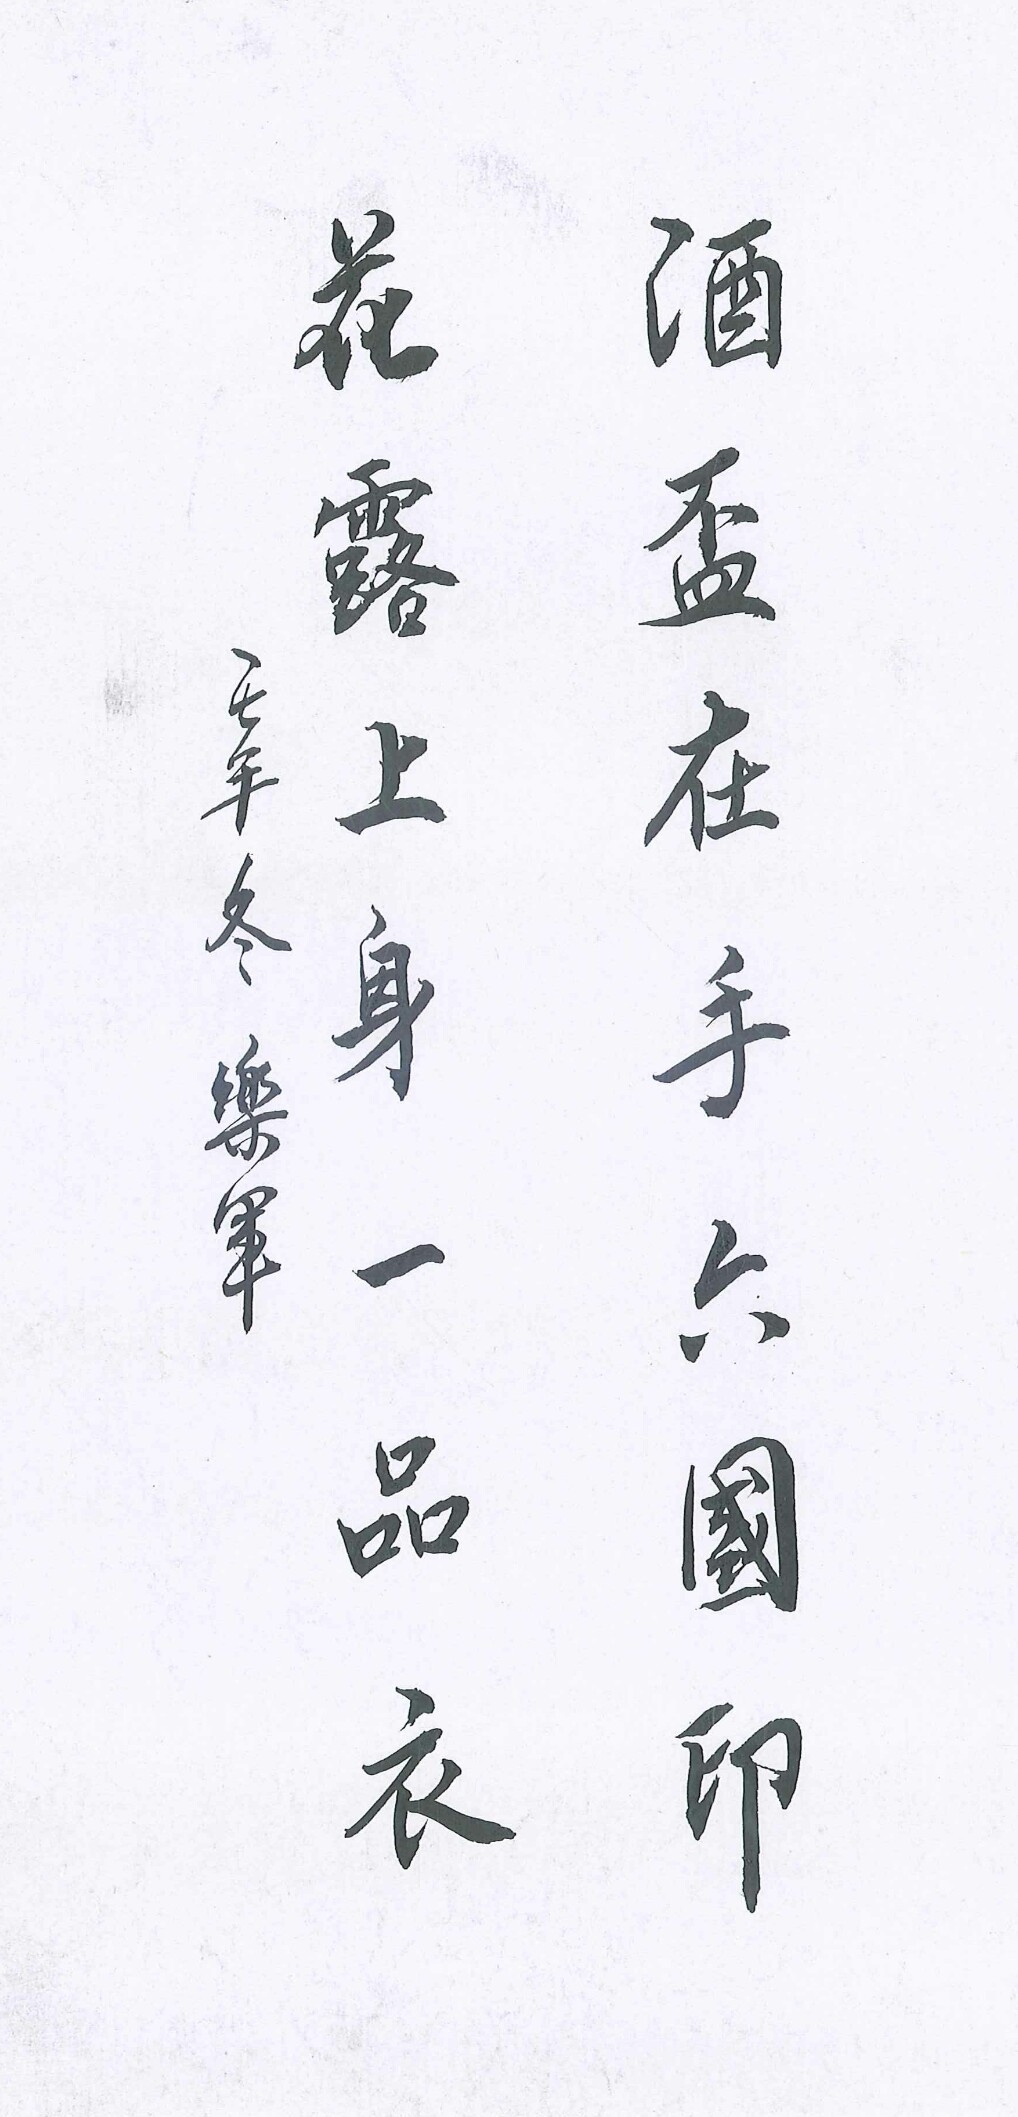 酒盃在手六國印
花露上身一品衣
一七年冬 樂軍